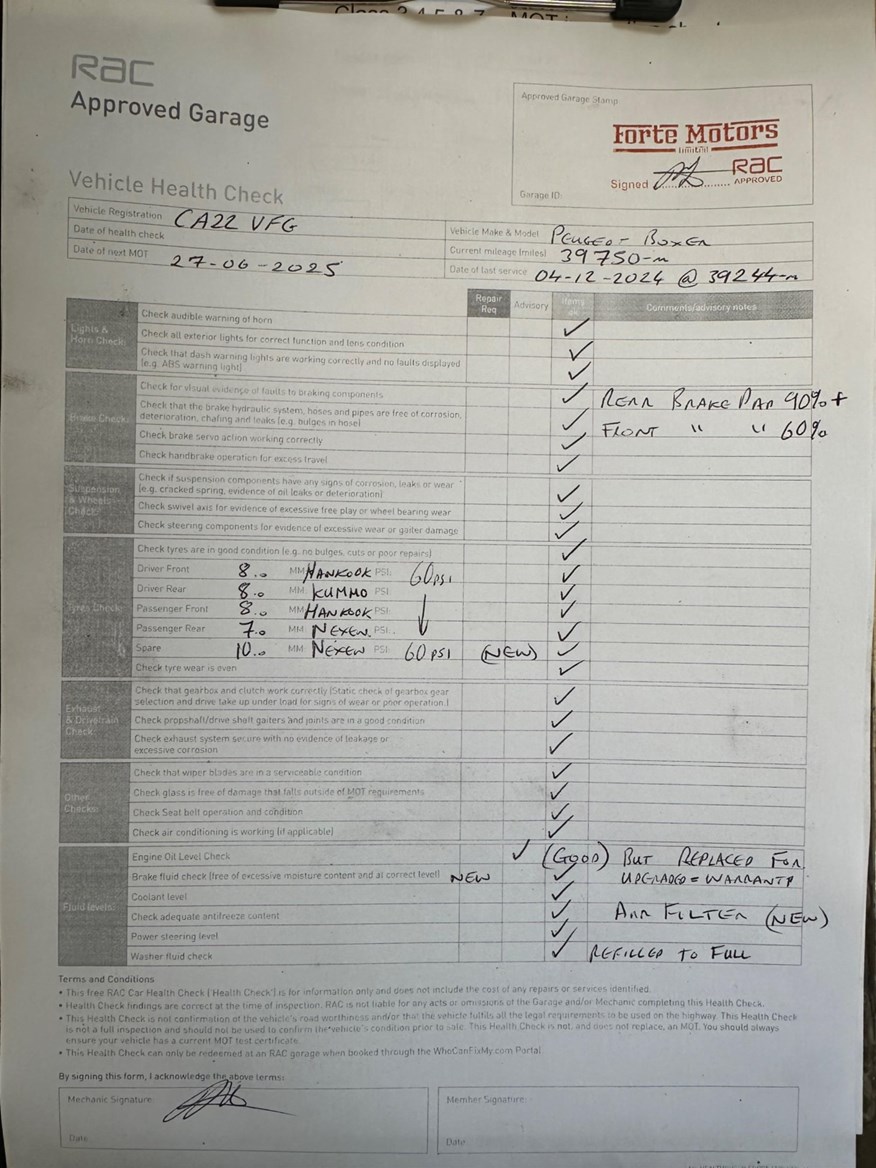 RAC
Approved Garage
Approved Garage Stamp
Forte Motors
limited
Signed ........... RAC
APPROVED
Garage ID:
Vehicle Health Check
Vehicle Registration CA22 VFG
Date of health check
Date of next MOT 27-06-2025
Vehicle Make & Model PEUGEOT BOXER
Current mileage (miles) 39750-m
Date of last service 04-12-2024 @ 39244-m
Repair Req Advisory Items ok Comments/advisory notes
Lights & Horn Check:
Check audible warning of horn ✓
Check all exterior lights for correct function and lens condition ✓
Check that dash warning lights are working correctly and no faults displayed
(e.g. ABS warning light) ✓
Brake Check:
Check for visual evidence of faults to braking components ✓ REAR BRAKE PAD 90%+
Check that the brake hydraulic system, hoses and pipes are free of corrosion,
deterioration, chafing and leaks (e.g. bulges in hose) ✓ FRONT " " 60%
Check brake servo action working correctly ✓
Check handbrake operation for excess travel ✓
Suspension & Wheels Check:
Check if suspension components have any signs of corrosion, leaks or wear
(e.g. cracked spring, evidence of oil leaks or deterioration) ✓
Check swivel axis for evidence of excessive free play or wheel bearing wear ✓
Check steering components for evidence of excessive wear or gaiter damage ✓
Tyres Check:
Check tyres are in good condition (e.g. no bulges, cuts or poor repairs) ✓
Driver Front 8.0 MM HANKOOK PSI: 60PSI ✓
Driver Rear 8.0 MM KUMHO PSI ✓
Passenger Front 8.0 MM HANKOOK PSI: ✓
Passenger Rear 7.0 MM NEXEN. PSI: ✓
Spare 10.0 MM NEXEN PSI 60PSI (NEW) ✓
Check tyre wear is even ✓
Exhaust & Drivetrain Check:
Check that gearbox and clutch work correctly (Static check of gearbox gear
selection and drive take up under load for signs of wear or poor operation.) ✓
Check propshaft/drive shaft gaiters and joints are in a good condition ✓
Check exhaust system secure with no evidence of leakage or
excessive corrosion ✓
Other Checks:
Check that wiper blades are in a serviceable condition ✓
Check glass is free of damage that falls outside of MOT requirements ✓
Check Seat belt operation and condition ✓
Check air conditioning is working (if applicable) ✓
Fluid levels:
Engine Oil Level Check ✓ (GOOD) BUT REPLACED FOR
Brake fluid check (free of excessive moisture content and at correct level) NEW ✓ UPGRADED = WARRANTY
Coolant level ✓
Check adequate antifreeze content ✓ AIR FILTER (NEW)
Power steering level ✓
Washer fluid check ✓ REFILLED TO FULL
Terms and Conditions
• This free RAC Car Health Check ('Health Check') is for information only and does not include the cost of any repairs or services identified.
• Health Check findings are correct at the time of inspection. RAC is not liable for any acts or omissions of the Garage and/or Mechanic completing this Health Check.
• This Health Check is not confirmation of the vehicle's road worthiness and/or that the vehicle fulfils all the legal requirements to be used on the highway. This Health Check
is not a full inspection and should not be used to confirm the vehicle's condition prior to sale. This Health Check is not, and does not replace, an MOT. You should always
ensure your vehicle has a current MOT test certificate.
• This Health Check can only be redeemed at an RAC garage when booked through the WhoCanFixMy.com Portal
By signing this form, I acknowledge the above terms:
Mechanic Signature:
Date:
Member Signature:
Date: